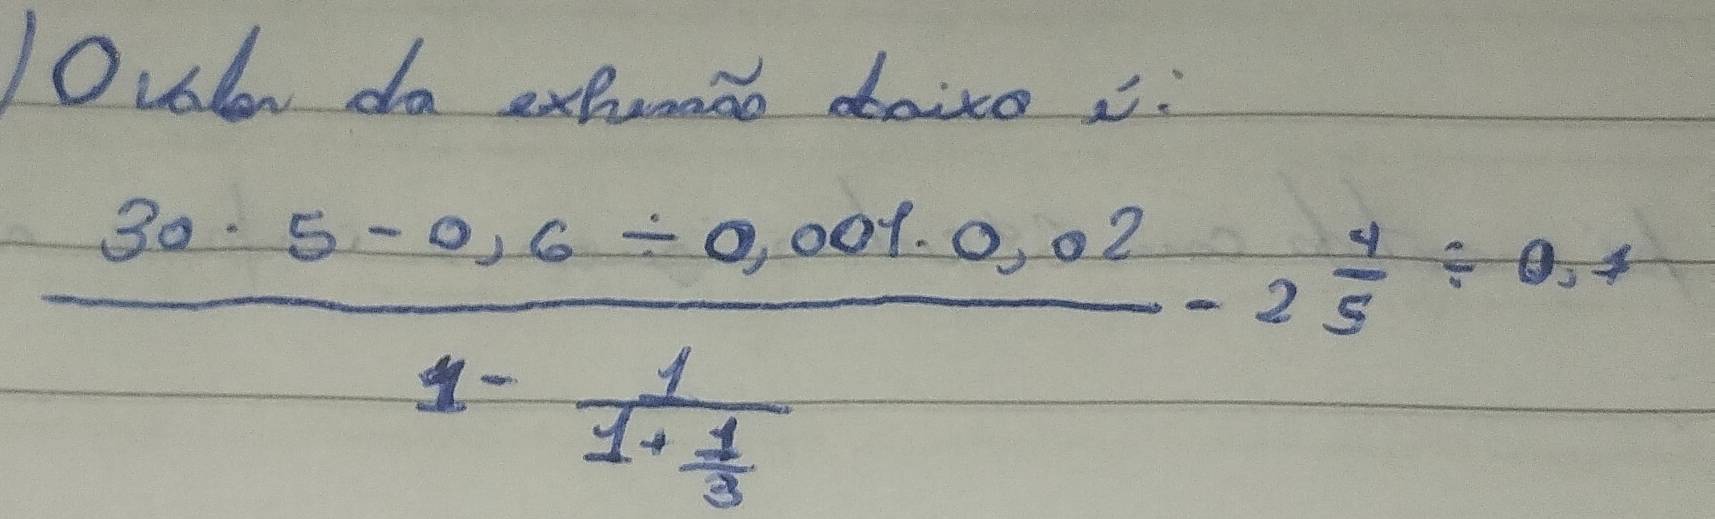 ) O valor da expressão abaixo é:
30 · 5 - 0,6 ÷ 0,001 · 0,02
- 2 1/5 ÷ 0,1
1 - 1
1 + 1/3